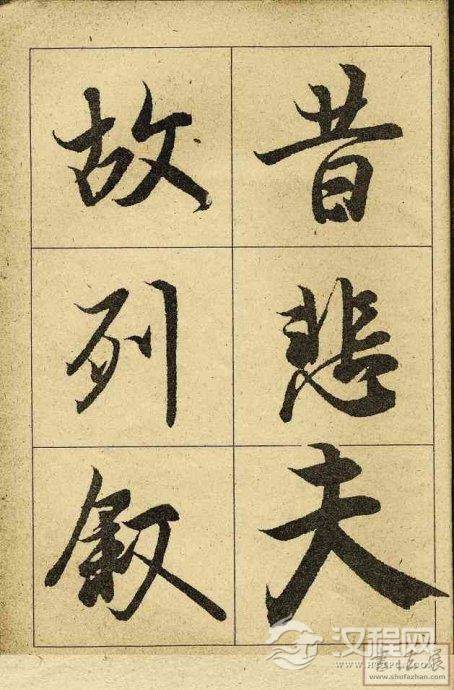 昔悲夫
故列叙
汉程网
WWW.HTTPCN.COM
www.shufazhan.com